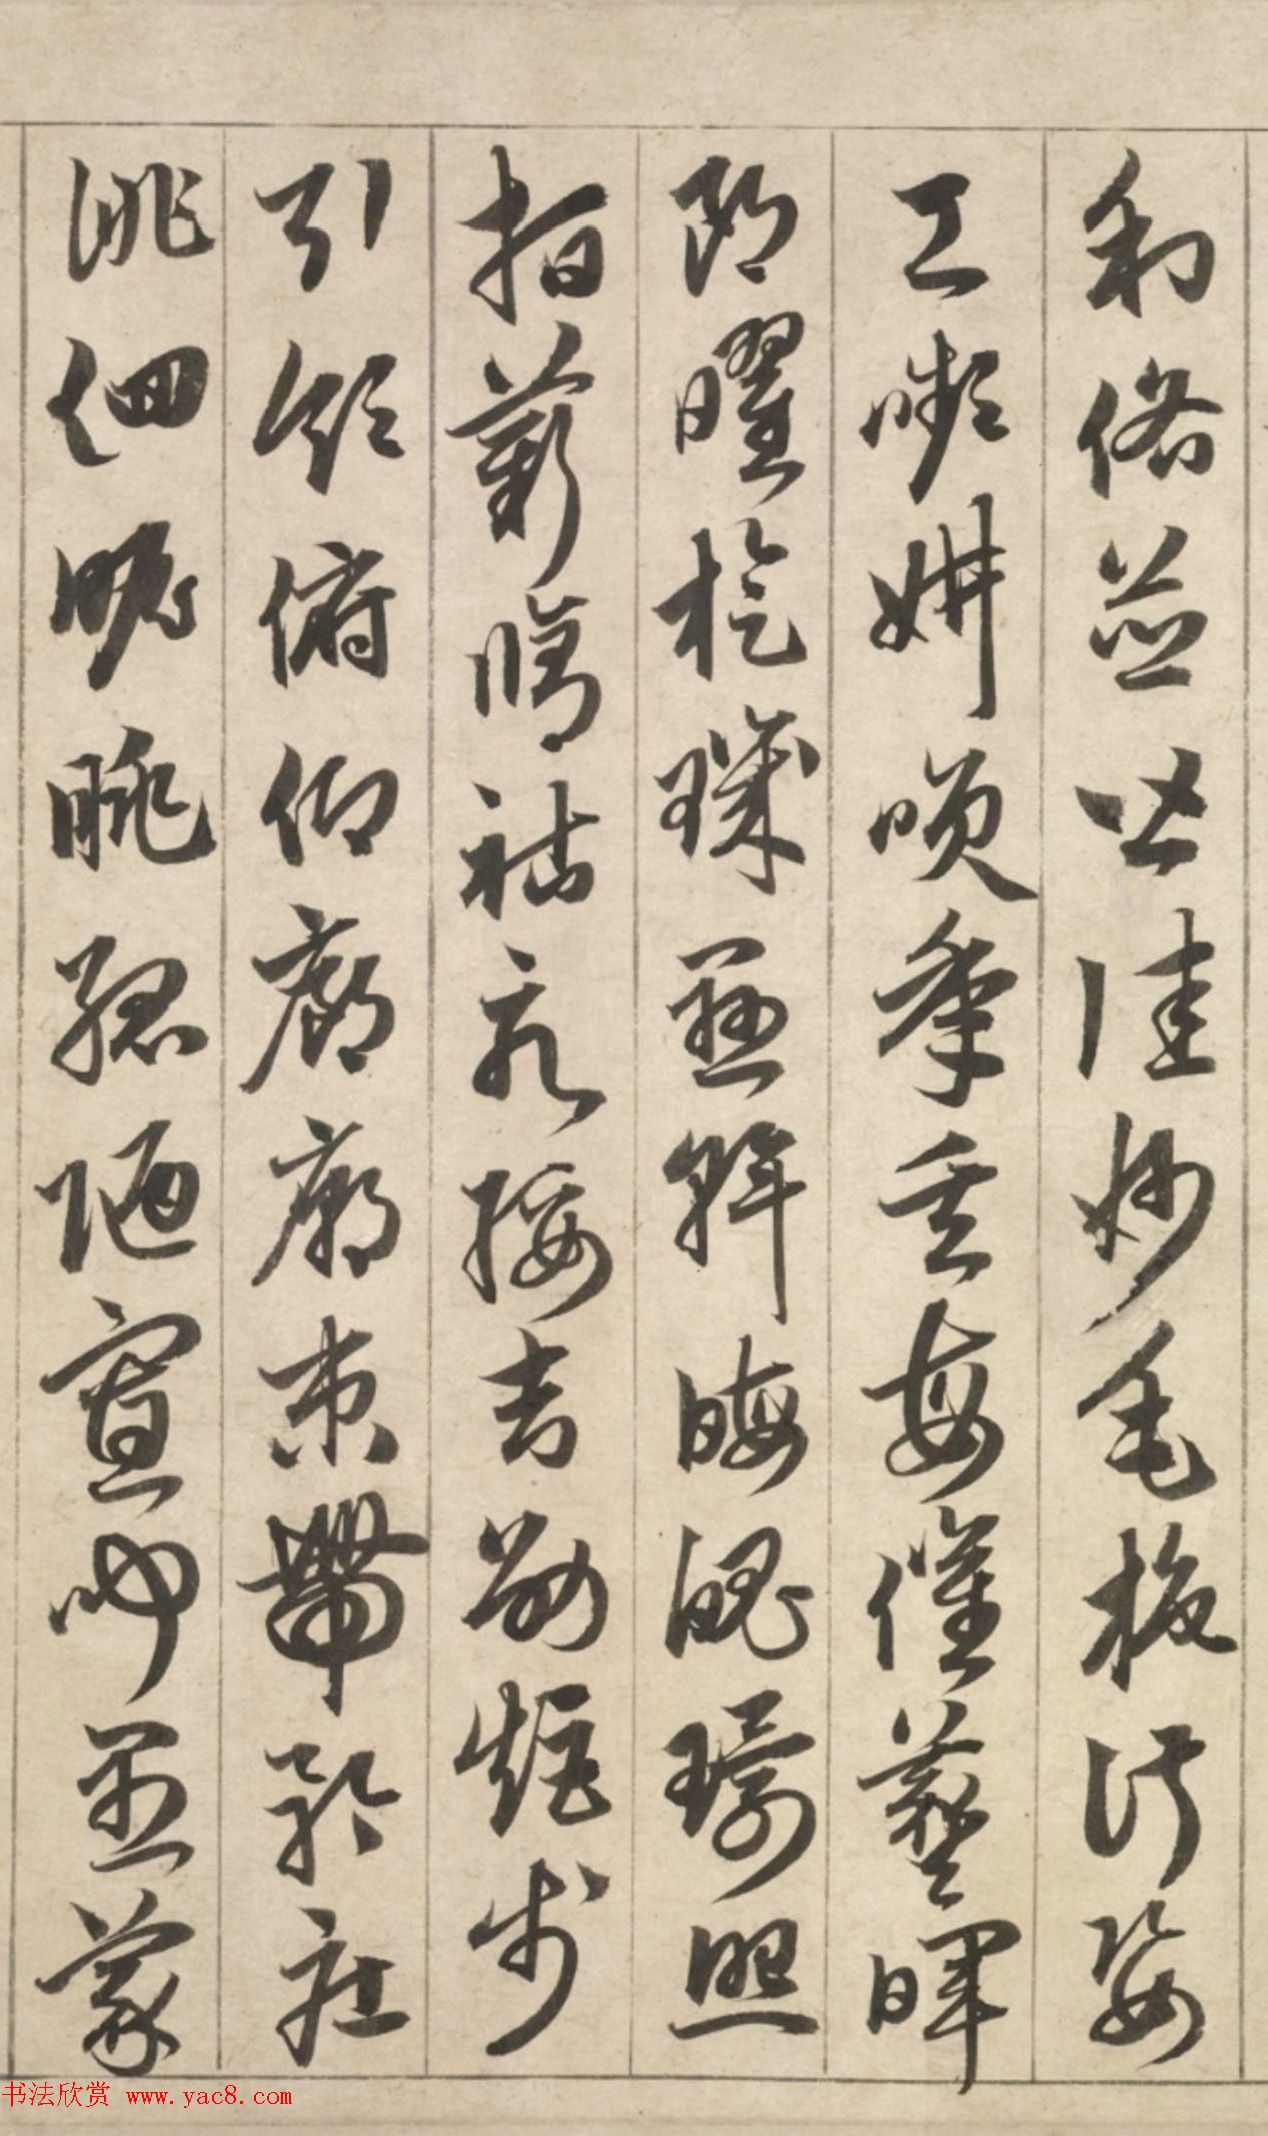 利俗並皆佳妙毛施淑姿
工嚬妍咲年矢每催羲暉
朗曜旋璣懸斡晦魄環照
指薪脩祜永綏吉劭矩步
引領俯仰廊廟束帶矜莊
徘徊瞻眺孤陋寡聞愚蒙
书法欣赏 www.yac8.com